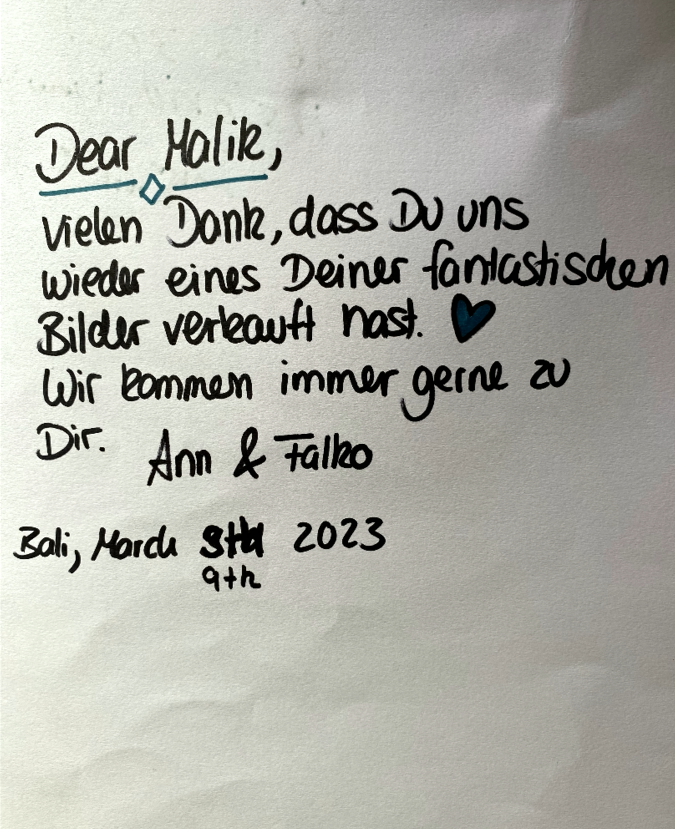 Dear Malik,
vielen Dank, dass Du uns
wieder eines Deiner fantastischen
Bilder verkauft hast. ♥
Wir kommen immer gerne zu
Dir. Ann & Falko
Bali, March 2023
9th